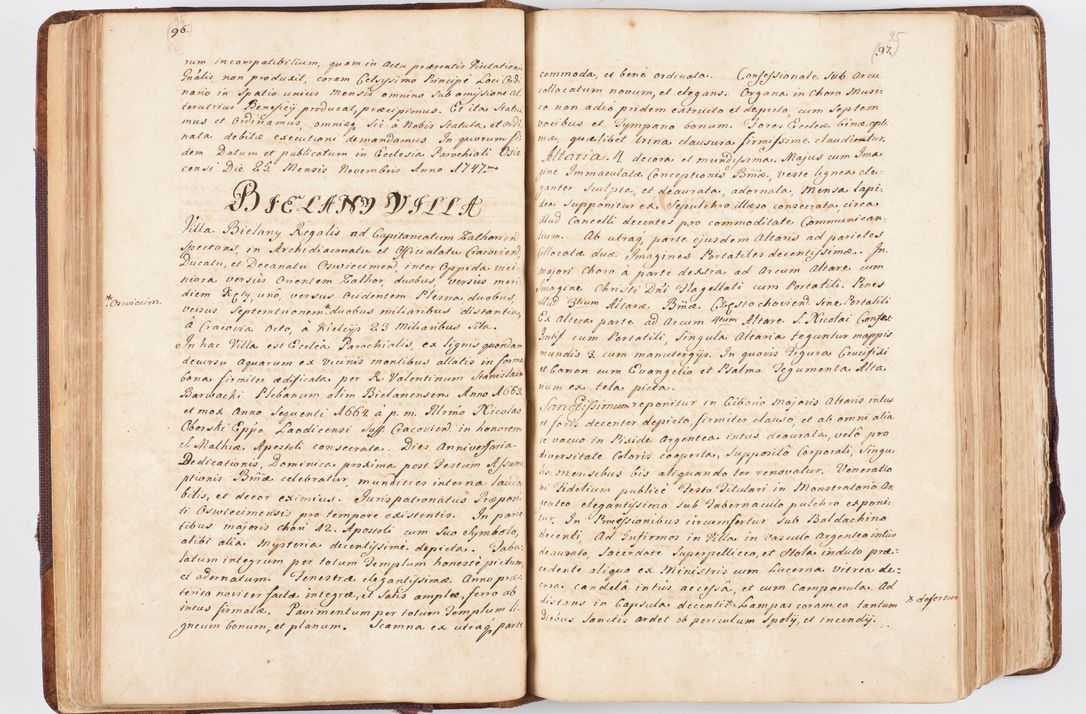 (96.
rum incompatibilium, quam in Actu præsentis Visitationis
Gnãlis, non produxit, coram Celsissimo Principe Loci Ordi
nario in Spatio unius Mensis omnino sub amissione al
terutrius Beneficÿ producat, præcipimus. Et ita Statui
mus et Ordinamus, omniaq, sic à Nobis Statuta, et ordi
nata debitæ executioni demandamus. In quorum fi
dem Datum et publicatum in Ecclesia Parochiali Osie
censi Die 25 Mensis Novembris Anno 1747
BIELANY VILLA
Villa Bielany Regalis ad Capitaneatum Zathorien
Spectans, in Archidiaconatu et Officialatu Cracovien,
Ducatu, et Decanatu Oswiecimen, inter Oppida vici
niora versus Orientem Zathor, duobus, versus meri
diem Kęty, uno, versus Occidentem Plesna duobus,
*Oswiecim.
versus Septentrionem * duobus miliaribus distantia,
à Cracovia Octo, à Kielcijs 23 Miliaribus Sita.
In hac Villa est Ecclêa Parochialis, ex lignis quondam
decursu Aquarum ex vicinis montibus allatis in forma
bona firmiter ædificata per R. Valentinum Stanislaum
Barwacki Plebanum olim Bielanensem Anno 1663.
et mox Anno Sequenti 1664 a p. m. Illmo Nicolao
Oborski Eppo Laodicensi Suff. Cracovien in honorem
S. Mathiæ Apostoli consecrata. Dies Anniversaria
Dedicationis, Dominica proxima post Festum Assum
ptionis Bmæ celebratur, mundities interna lauda
bilis, et decor eximius. Jurispatronatus Præposi
ti Oswiecimensis pro tempore existentis. In parie
tibus majoris chori 12. Apostoli cum Suo Symbolo,
alibi alia Mysteria decentissime depicta. Tabu
latum integrum per totum Templum honestè pictum,
et adornatum. Fenestræ elegantissimæ Anno præ
terito noviter factæ integræ, et satis amplæ, ferro ab
intus firmatæ. Pavimentum per totum Templum li
gneum bonum, et planum. Scamna ex utraq, parte
25
(97.)
commoda, et benè ordinata. Confessionale sub Arcu
collocatum novum, et elegans. Organa in Choro Musi
co non adeò pridem extructo et depicto, cum Septem
vocibus et Tympano bonum. Fores Ecclæ binæ opti
mæ, quælibet trina clausura firmissime clauditur.
Altaria 4 decora et mundissima. Majus cum Ima
gine Immaculatæ Conceptionis Bmæ, veste lignea ele
ganter Sculpta, et deaurata, adornata, Mensa lapi
dea Supponitur ex Sepulchro illæso consecrata, circa
illud Cancelli decentes pro commoditate Communican
tium. Ab utraq, parte ejusdem Altaris ad parietes
collocatæ duæ Imagines Portatiles decentissimæ. In
majori Choro à parte dextra ad Arcum Altare cum
Imagine Christi Dñi Flagellati cum Portatili. Penes
illud 3tium Altare Bmæ Częstochovien sine Portatili
Ex Altera parte ad Arcum 4tum Altare S. Nicolai Confes
Pntif cum Portatili, Singula Altaria teguntur mappis
mundis 3 cum manutergijs. In quovis Figura Crucifixi
et Canon cum Evangelio et Psalmo Tegumenta Alta
rium ex tela picta.
Sanctissimum reponitur in Ciborio Majoris Altaris intus
et foris decenter depicto firmiter clauso, et ab omni alia
re vacuo in Piside Argentea intus deaurata, velô pro
diversitate Coloris cooperta, supposito Corporali, Singu
lis mensibus bis aliquando ter renovatur. Veneratio
ni Fidelium publicè Festo Titulari in Monstratorio Ar
genteo elegantissimo sub Tabernaculo pulchro exponi
tur. In Processionibus circumfertur sub Baldachino
decenti, Ad Infirmos in Villa in vasculo Argenteo intus
deaurato, Sacerdote Superpelliceo, et Stola induto præ=
cedente aliquo ex Ministris cum Lucerna vitrea de=
cora candela intùs accensa, et cum Campanula. Ad
distans in Capsula decenti * Lampas coram eo tantum
* defertur
Diebus Sanctis ardet ob periculum Spolÿ, et incendÿ.